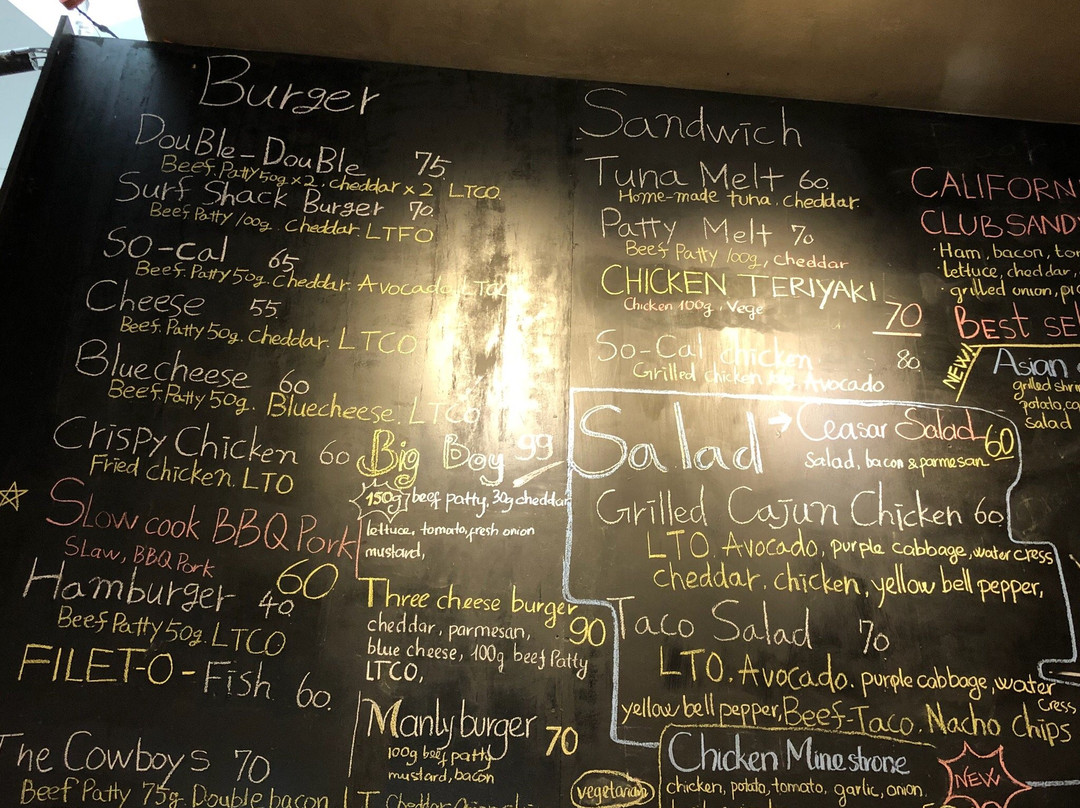 Burger
DouBle-DouBle 75
Beef. Patty 50g x 2. cheddar x 2 LTCO.
Surf Shack Burger 70.
Beef Patty 100g. Cheddar. LTFO
SO-cal 65
Beef. Patty 50g. Cheddar. Avocado. LTCO
Cheese 55
Beef. Patty 50g. Cheddar. LTCO
Blue cheese 60
Beef. Patty 50g. Bluecheese. LTCO
Crispy Chicken 60
Fried chicken. LTO
Slow cook BBQ Pork
Slaw, BBQ Pork 60
Hamburger 40.
Beef Patty 50g. LTCO
FILET-O-Fish 60.
The Cowboys 70
Beef Patty 75g. Double bacon
Big Boy 99
150g beef patty, 30g cheddar
lettuce, tomato, fresh onion
mustard,
Three cheese burger
cheddar, parmesan, 90
blue cheese, 100g beef Patty
LTCO,
Manly burger 70
100g beef patty
mustard, bacon
Sandwich
Tuna Melt 60
Home-made tuna. cheddar.
Patty Melt 70
Beef Patty 100g, cheddar
CHICKEN TERIYAKI
Chicken 100g, Vege 70
So-Cal chicken 80
Grilled chicken Avocado
Salad → Ceasar Salad 60
Salad, bacon & parmesan
Grilled Cajun Chicken 60
LTO. Avocado, purple cabbage, water cress
cheddar. chicken, yellow bell pepper,
Taco Salad 70
LTO. Avocado. purple cabbage, water cress
yellow bell pepper, Beef-Taco. Nacho chips
Chicken Minestrone NEW
chicken, potato, tomato, garlic, onion.
vegetarian
CALIFORN
CLUB SAND
·Ham, bacon, to
·lettuce, cheddar,
·grilled onion, pi
BEST SE
NEW! Asian
grilled shri
potato, ca
salad